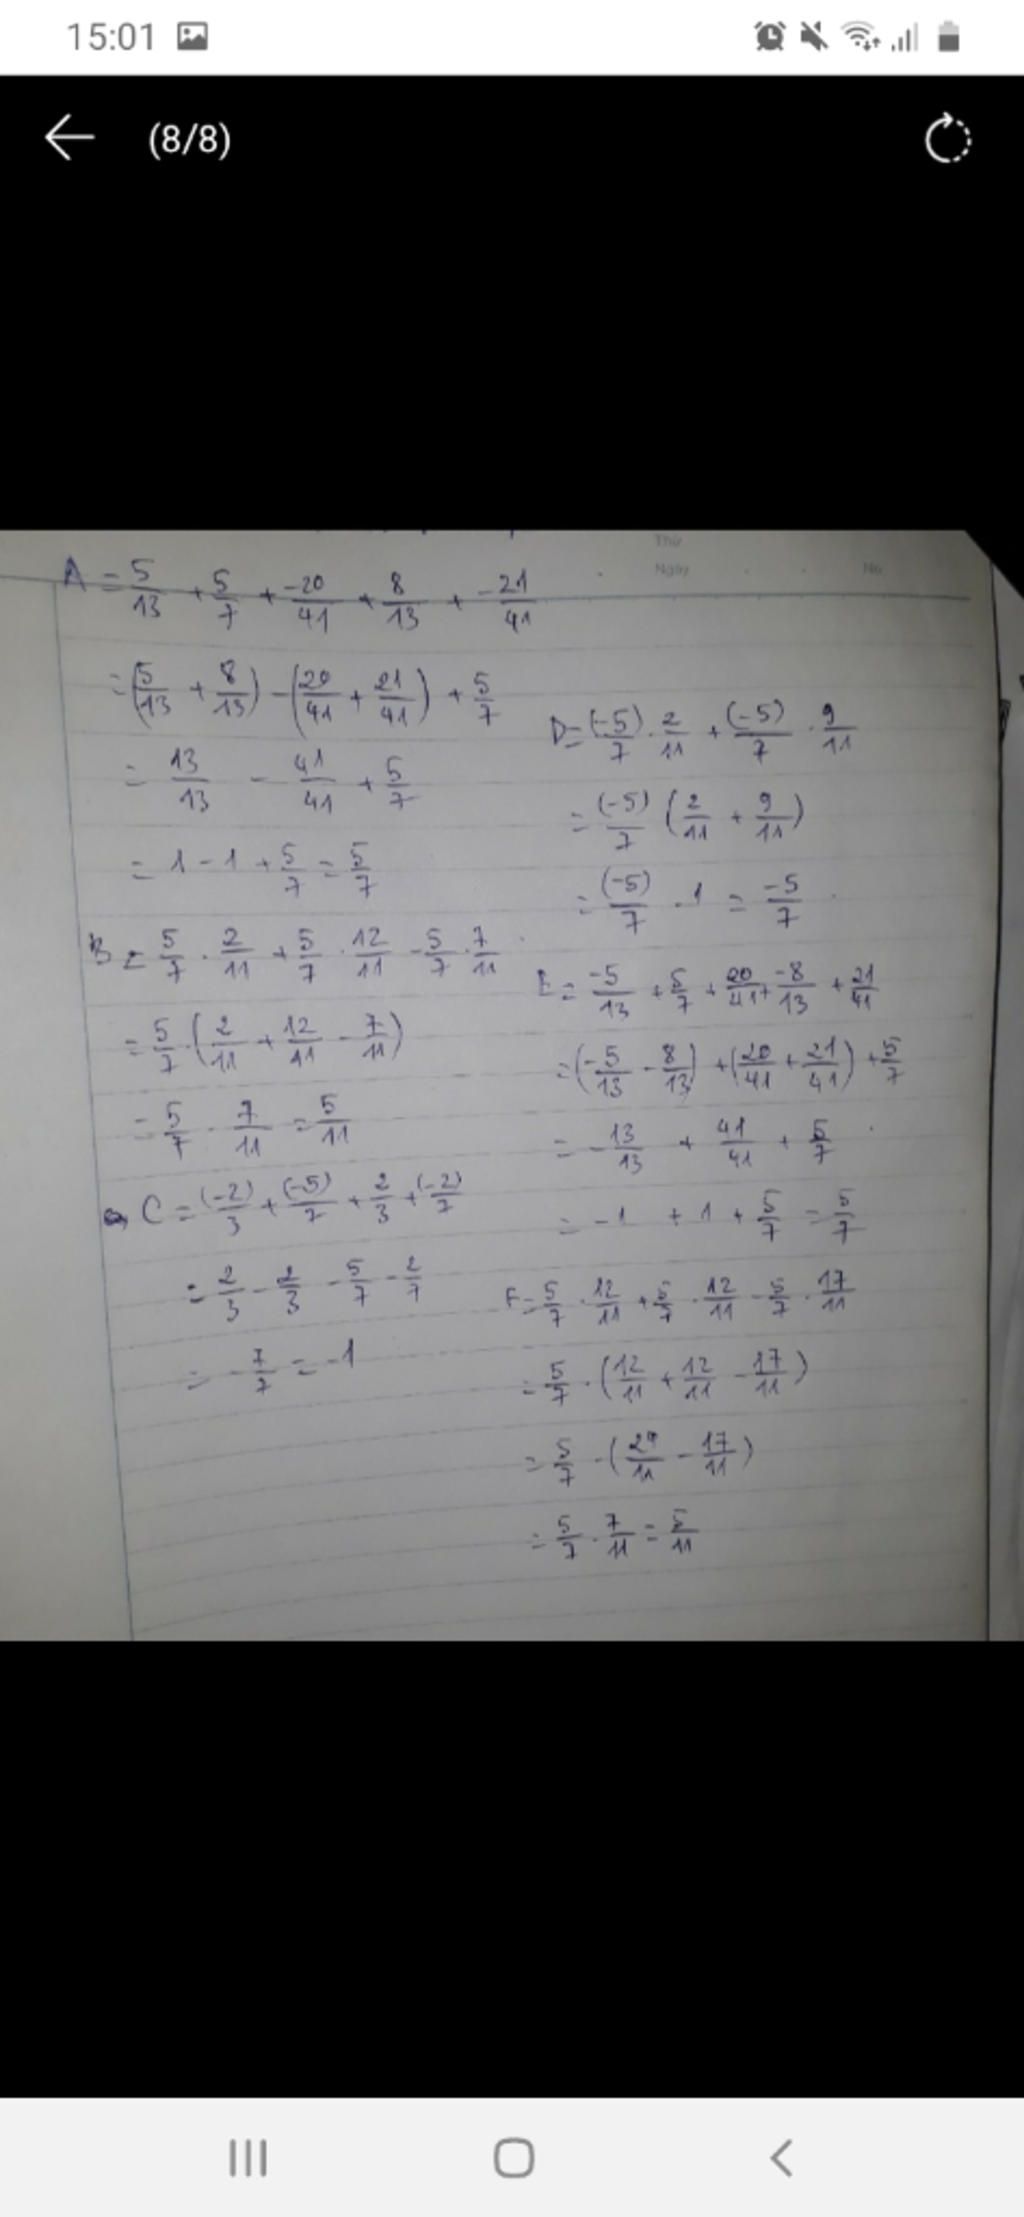 15:01
(8/8)
Thứ
Ngày No
A = 5/13 + 5/7 + -20/41 + 8/13 + -21/41
= (5/13 + 8/13) - (20/41 + 21/41) + 5/7
= 13/13 - 41/41 + 5/7
= 1 - 1 + 5/7 = 5/7
B = 5/7 . 2/11 + 5/7 . 12/11 - 5/7 . 7/11
= 5/7 . (2/11 + 12/11 - 7/11)
= 5/7 . 7/11 = 5/11
C = (-2)/3 + (-5)/7 + 2/3 + (-2)/7
= 2/3 - 2/3 - 5/7 - 2/7
= - 7/7 = -1
D = (-5)/7 . 2/11 + (-5)/7 . 9/11
= (-5)/7 (2/11 + 9/11)
= (-5)/7 . 1 = -5/7
E = -5/13 + 5/7 + 20/41 + -8/13 + 21/41
= (-5/13 - 8/13) + (20/41 + 21/41) + 5/7
= - 13/13 + 41/41 + 5/7
= -1 + 1 + 5/7 = 5/7
F = 5/7 . 12/11 + 5/7 . 12/11 - 5/7 . 17/11
= 5/7 . (12/11 + 12/11 - 17/11)
= 5/7 . (24/11 - 17/11)
= 5/7 . 7/11 = 5/11